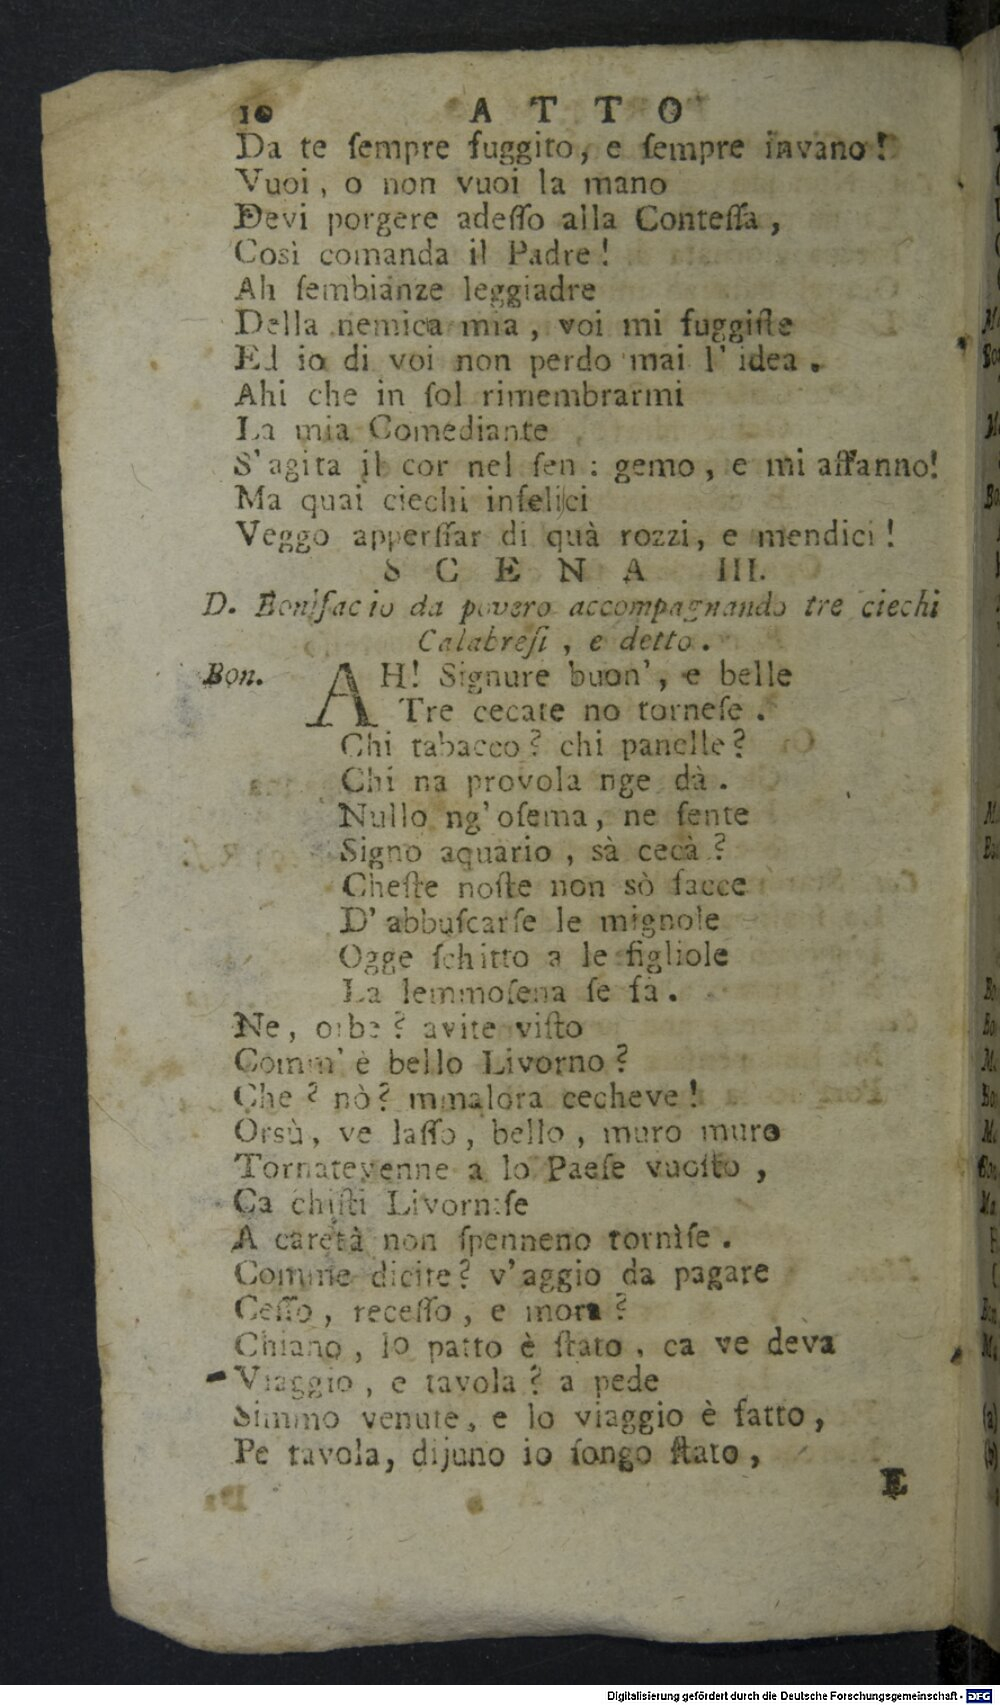 10 ATTO
Da te ſempre fuggito, e ſempre invano!
Vuoi, o non vuoi la mano
Devi porgere adeſſo alla Conteſſa,
Così comanda il Padre!
Ah ſembianze leggiadre
Della nemica mia, voi mi fuggiſte
Ed io di voi non perdo mai l' idea.
Ahi che in ſol rimembrarmi
La mia Comediante
S' agita il cor nel ſen: gemo, e mi affanno!
Ma quai ciechi infelici
Veggo apperſſar di quà rozzi, e mendici!
SCENA III.
D. Bonifacio da povero accompagnando tre ciechi
Calabreſi, e detto.
Bon. AH! Signure buon', e belle
Tre cecate no torneſe.
Chi tabacco? chi panelle?
Chi na provola nge dà.
Nullo ng' oſema, ne ſente
Signo aquario, sà cecà?
Cheſte noſte non sò facce
D' abbuſcarſe le mignole
Ogge ſchitto a le figliole
La lemmoſena ſe fa.
Ne, orbe? avite viſto
Comm' è bello Livorno?
Che? nò? mmalora cecheve!
Orsù, ve laſſo, bello, muro muro
Tornatevenne a lo Paeſe vuoſto,
Ca chiſti Livorniſe
A caretà non ſpenneno torniſe.
Comme dicite? v' aggio da pagare
Ceſſo, receſſo, e mora?
Chiano, lo patto è ſtato, ca ve deva
Viaggio, e tavola? a pede
Simmo venute, e lo viaggio è fatto,
Pe tavola, dijuno io ſongo ſtato,
E
Digitalisierung gefördert durch die Deutsche Forschungsgemeinschaft - DFG